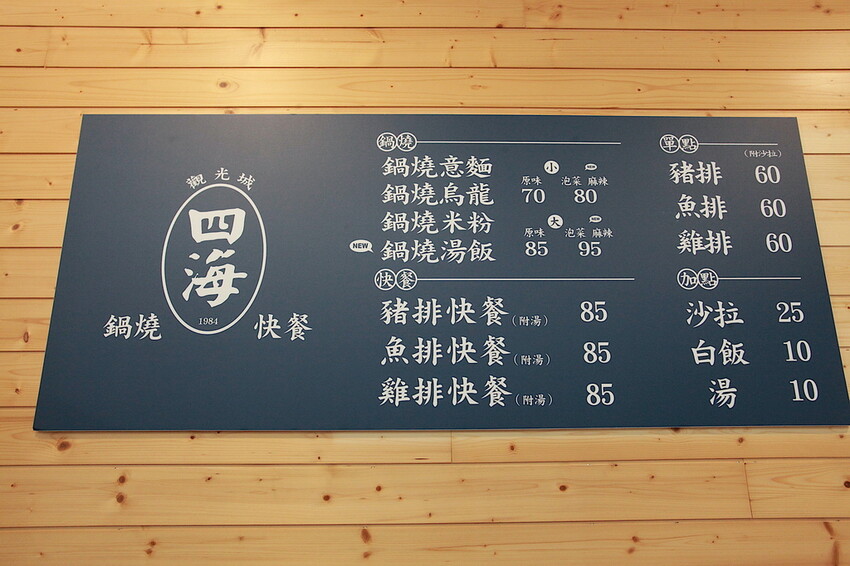 觀光城
四海
1984
鍋燒 快餐
鍋燒
鍋燒意麵
鍋燒烏龍
鍋燒米粉
NEW 鍋燒湯飯
小 NEW
原味 泡菜 麻辣
70 80
大 NEW
原味 泡菜 麻辣
85 95
快餐
豬排快餐(附湯) 85
魚排快餐(附湯) 85
雞排快餐(附湯) 85
單點
(附沙拉)
豬排 60
魚排 60
雞排 60
加點
沙拉 25
白飯 10
湯 10